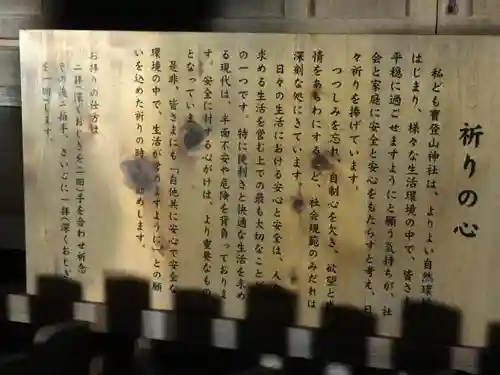 祈りの心
私ども寶登山神社は、よりよい自然環境
はじまり、様々な生活環境の中で、皆さま
平穏に過ごせますようにと願う気持ちが、社
会と家庭に安全と安心をもたらすと考え、日
々祈りを捧げています。
つつしみを忘れ、自制心を欠き、欲望と
情をあらわにする ど、社会規範のみだれは
深刻な処にきています。
日々の生活における安心と安全は、人
求める生活を営む上での最も大切なこと
の一つです。特に便利さと快適な生活を求め
る現代は、半面不安や危険を背負っておりま
す。安全に対する心がけは、より重要なもの
となっていま
是非、皆さまにも「自他共に安心で安全な
環境の中で、生活が ますように」との願
いを込めた祈りの時 めします。
お祈りの仕方は
二拝(深くおじぎを二回)手を合わせ祈念
その後二拍手、さいごに一拝(深くおじぎ
を一回)です。